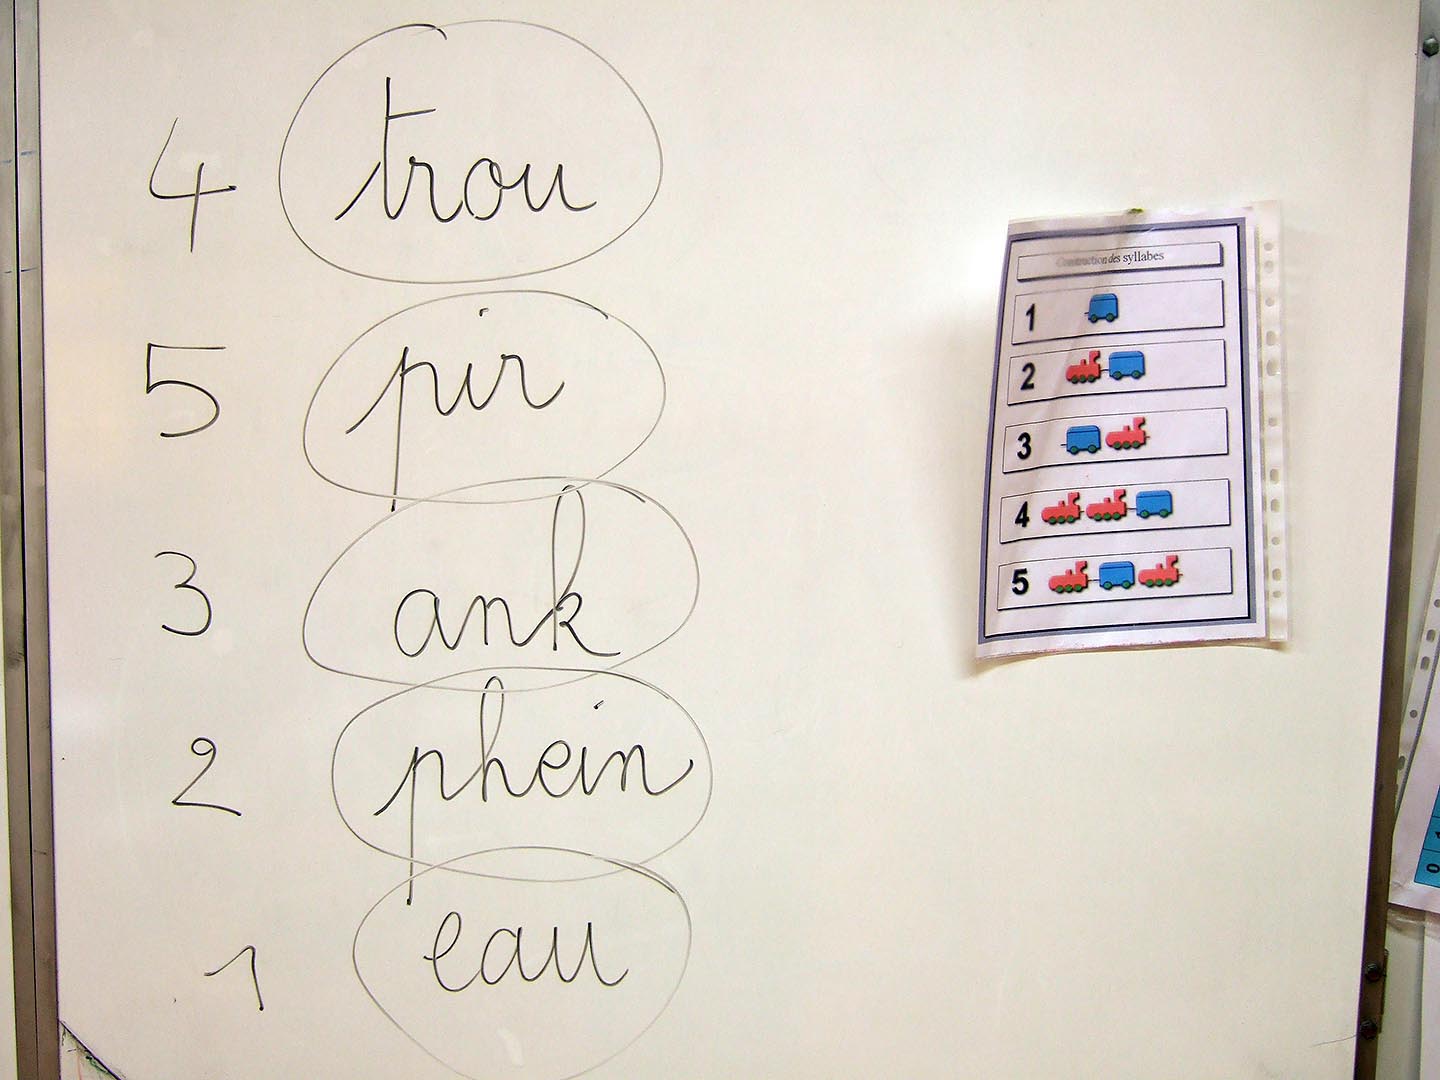 4 trou
5 pir
3 ank
2 phein
1 eau
Construction des syllabes
1
2
3
4
5